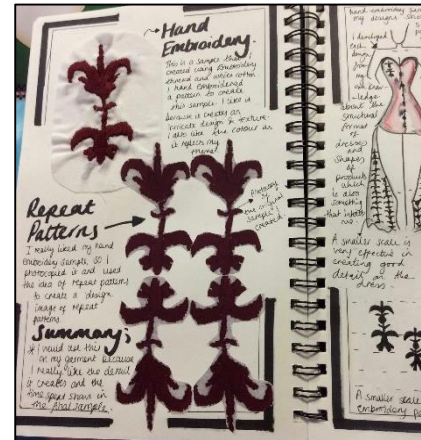 Hand
Embroidery.
This is a sample that I
created using Embroidery
thread and white cotton
I hand embroidered
a pattern to create
this sample. I like it
because it creates an
intricate design & texture.
I also like the colour as
it reflects my
theme!
Repeat
Patterns
I really liked my hand
Embroidery sample, so I
photocopied it and used
the idea of repeat patterns
to create a design
image of repeat
patterns.
photocopy
of the original
sample I
created.
Summary;
* I would use this
on my garment because
I really like the detail
it creates and the
time spent shows in
the final sample.
hand embroidery
my designs
I developed
each
design
from
my
about the
structural
format
of
dresses
and
shapes
of
products
which
is also
something
that
me.
A smaller scale is
very effective in
creating good
detail on the
dress.
A smaller scale
embroidery